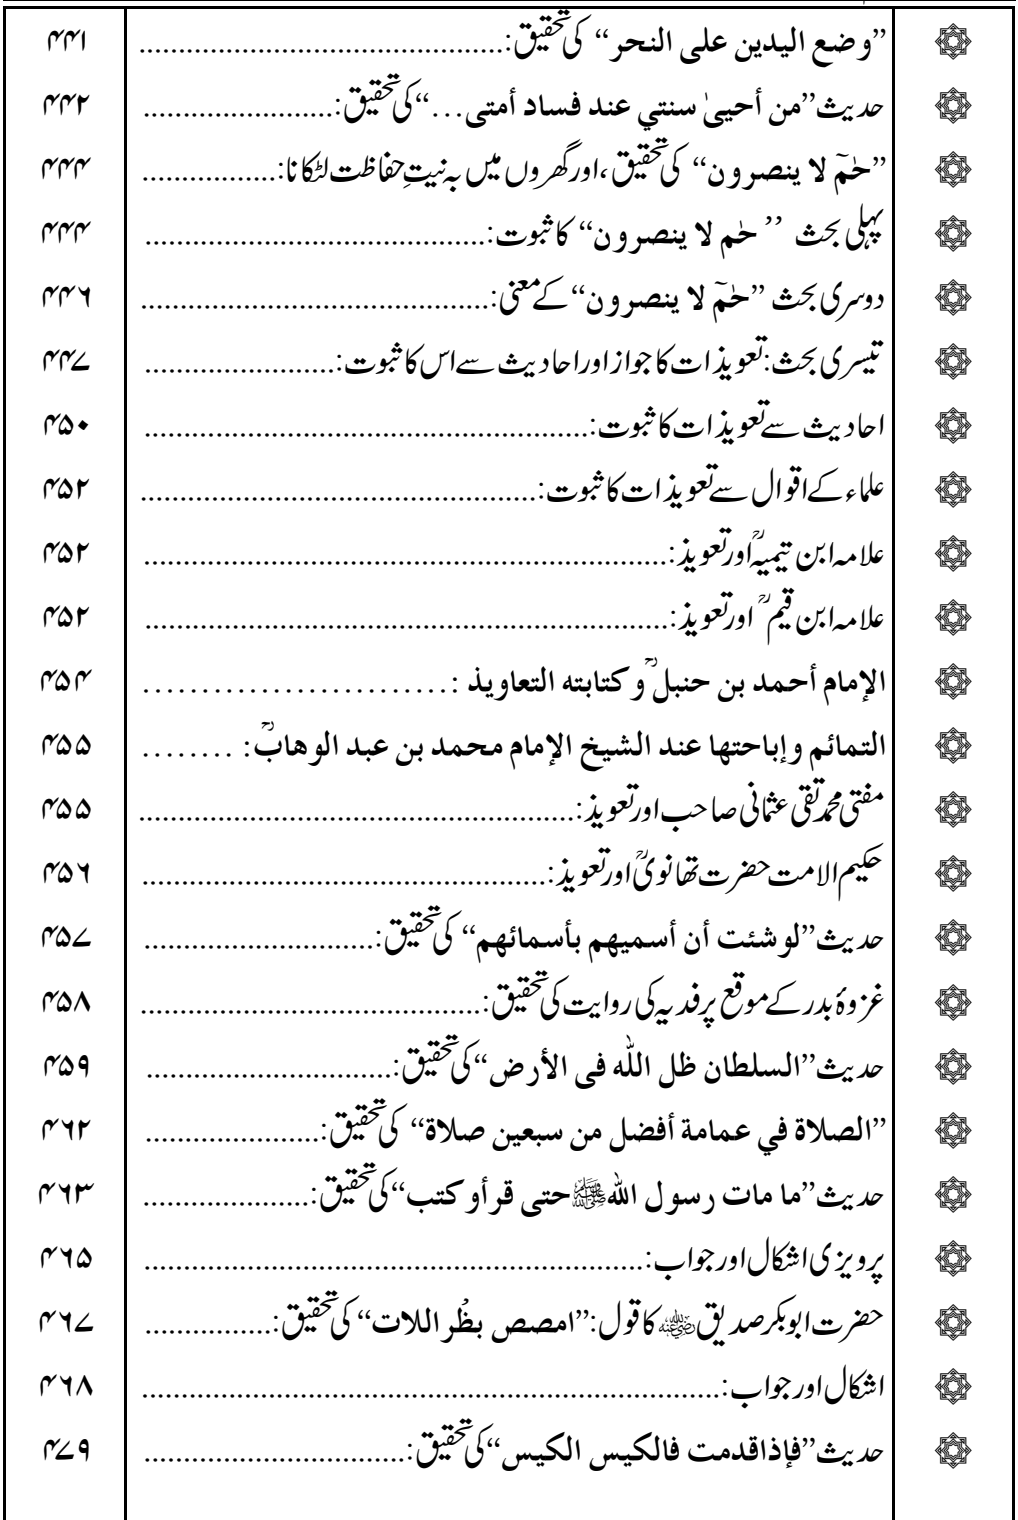 ”وضع اليدين على النحر“ کی تحقیق:................ ۴۴۱
حدیث ”من أحییٰ سنتي عند فساد أمتی...“ کی تحقیق:................ ۴۴۲
”حٰمٓ لا ینصرون“ کی تحقیق، اور گھروں میں بہ نیتِ حفاظت لٹکانا:................ ۴۴۴
پہلی بحث ’’حٰم لا ینصرون“ کا ثبوت:................ ۴۴۴
دوسری بحث ”حٰمٓ لا ینصرون“ کے معنی:................ ۴۴۶
تیسری بحث: تعویذات کا جواز اور احادیث سے اس کا ثبوت:................ ۴۴۷
احادیث سے تعویذات کا ثبوت:................ ۴۵۰
علماء کے اقوال سے تعویذات کا ثبوت:................ ۴۵۲
علامہ ابن تیمیہؒ اور تعویذ:................ ۴۵۲
علامہ ابن قیمؒ اور تعویذ:................ ۴۵۲
الإمام أحمد بن حنبلؒ و کتابته التعاویذ:................ ۴۵۴
التمائم وإباحتها عند الشیخ الإمام محمد بن عبد الوهابؒ:........ ۴۵۵
مفتی محمد تقی عثمانی صاحب اور تعویذ:................ ۴۵۵
حکیم الامت حضرت تھانویؒ اور تعویذ:................ ۴۵۶
حدیث ”لو شئت أن أسمیهم بأسمائهم“ کی تحقیق:................ ۴۵۷
غزوۂ بدر کے موقع پر فدیہ کی روایت کی تحقیق:................ ۴۵۸
حدیث ”السلطان ظل اللّٰه فی الأرض“ کی تحقیق:................ ۴۵۹
”الصلاة في عمامة أفضل من سبعین صلاة“ کی تحقیق:................ ۴۶۲
حدیث ”ما مات رسول اللّٰه ﷺ حتی قرأ و کتب“ کی تحقیق:................ ۴۶۳
پرویزی اشکال اور جواب:................ ۴۶۵
حضرت ابوبکر صدیق رضی اللہ عنہ کا قول: ”امصص بظْر اللات“ کی تحقیق:................ ۴۶۷
اشکال اور جواب:................ ۴۶۸
حدیث ”فإذا قدمت فالکیس الکیس“ کی تحقیق:................ ۴۷۹